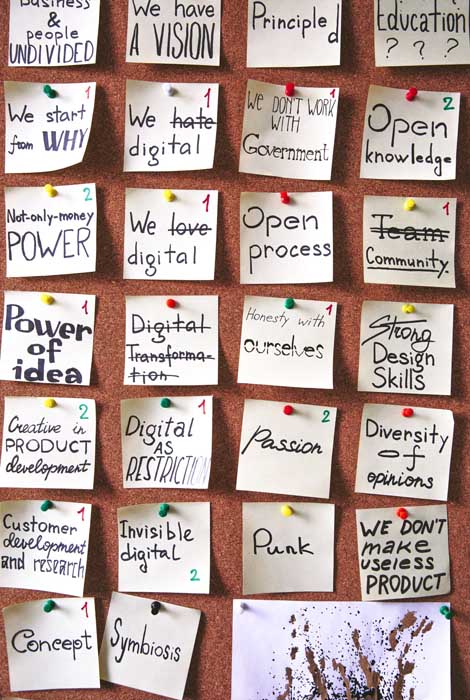 business
&
people
UNDIVIDED
We have
A VISION
Principled
Education
? ? ?
1
We start
from WHY
1
We hate
digital
1
We DON'T WORK
WITH
Government
2
Open
knowledge
2
Not-only-money
POWER
1
We love
digital
Open
process
1
Team
Community.
1
Power
of
idea
Digital
Transforma-
tion
1
Honesty with
ourselves
Strong
Design
Skills
2
Creative in
PRODUCT
development
1
Digital
AS
RESTRICTION
2
Passion
Diversity
of
opinions
1
Customer
development
and research
Invisible
digital
2
Punk
WE DON'T
make
useless
PRODUCT
1
Concept
Symbiosis